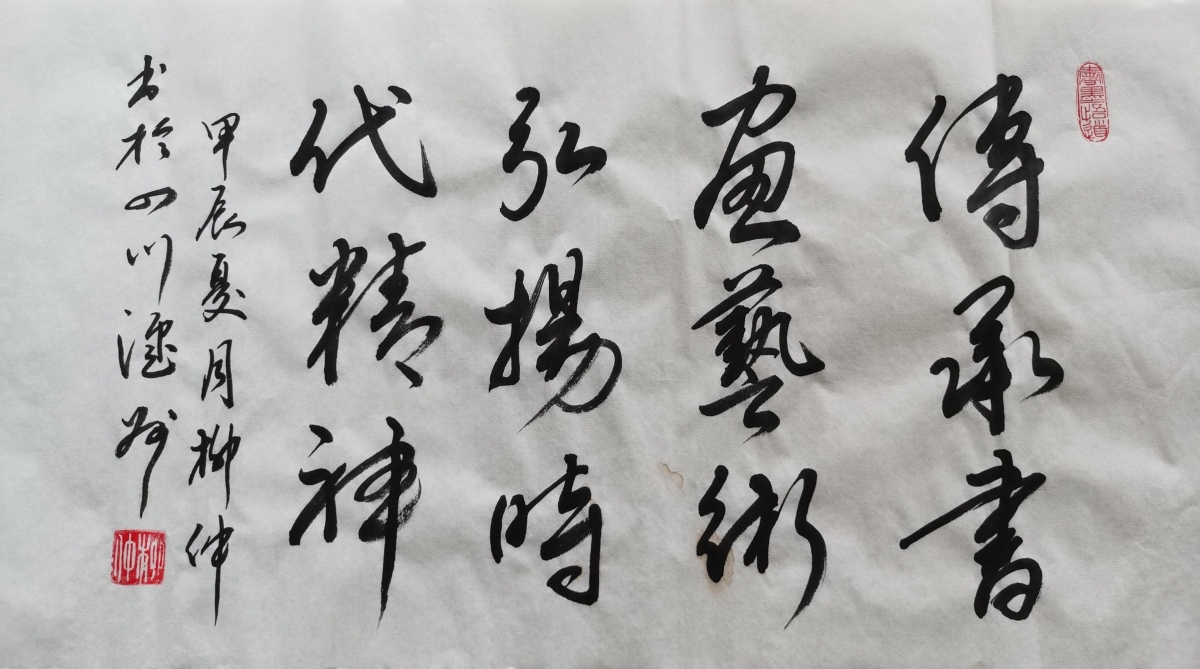 傳承書
畫藝術
弘揚時
代精神
甲辰夏月柳仲
书於四川瀘州
柳仲